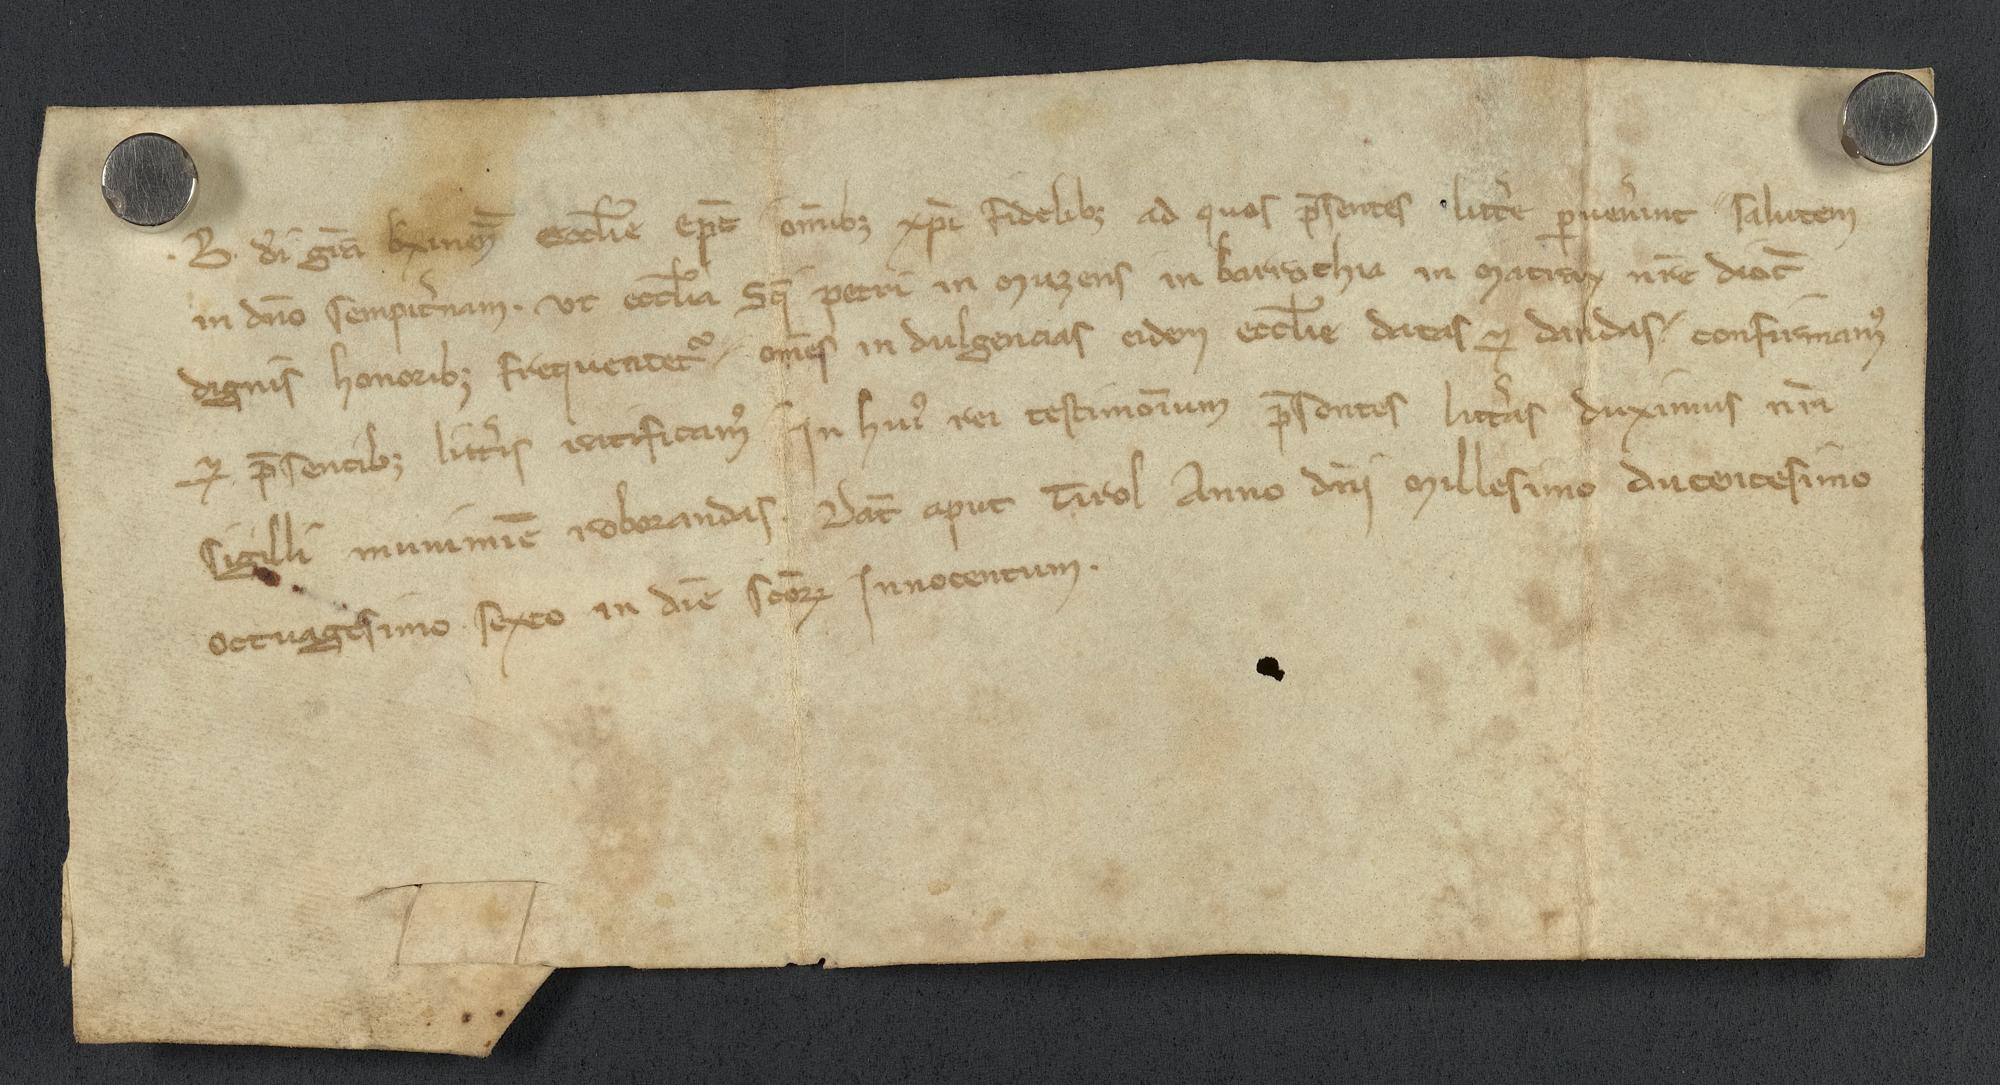 .B. dei grã bxineñ ecclie epc omībꝫ xpi fidelibꝫ ad quos p̄sentes litt̾e ꝑuen̾int salutem
in dño sempit̾nam. ut ecclia Sci petri in Muzens in barrochia in Matray nr̄e dioc̄
dignis honoribꝫ frequentet᷑ / om̄es in dulgencias eidem ecclie datas ⁊ dandas / confirmamꝰ
⁊ p̄sentibꝫ litt̾is ratificamꝰ In huiꝰ rei testimoīum p̄sentes litt̾as duximus nr̄i
sigilli munimīe roborandas. Dat̄ aput Tirol Anno dñi Millesimo ducentesimo
octuagesimo sexto in die scōꝝ Innocentum.